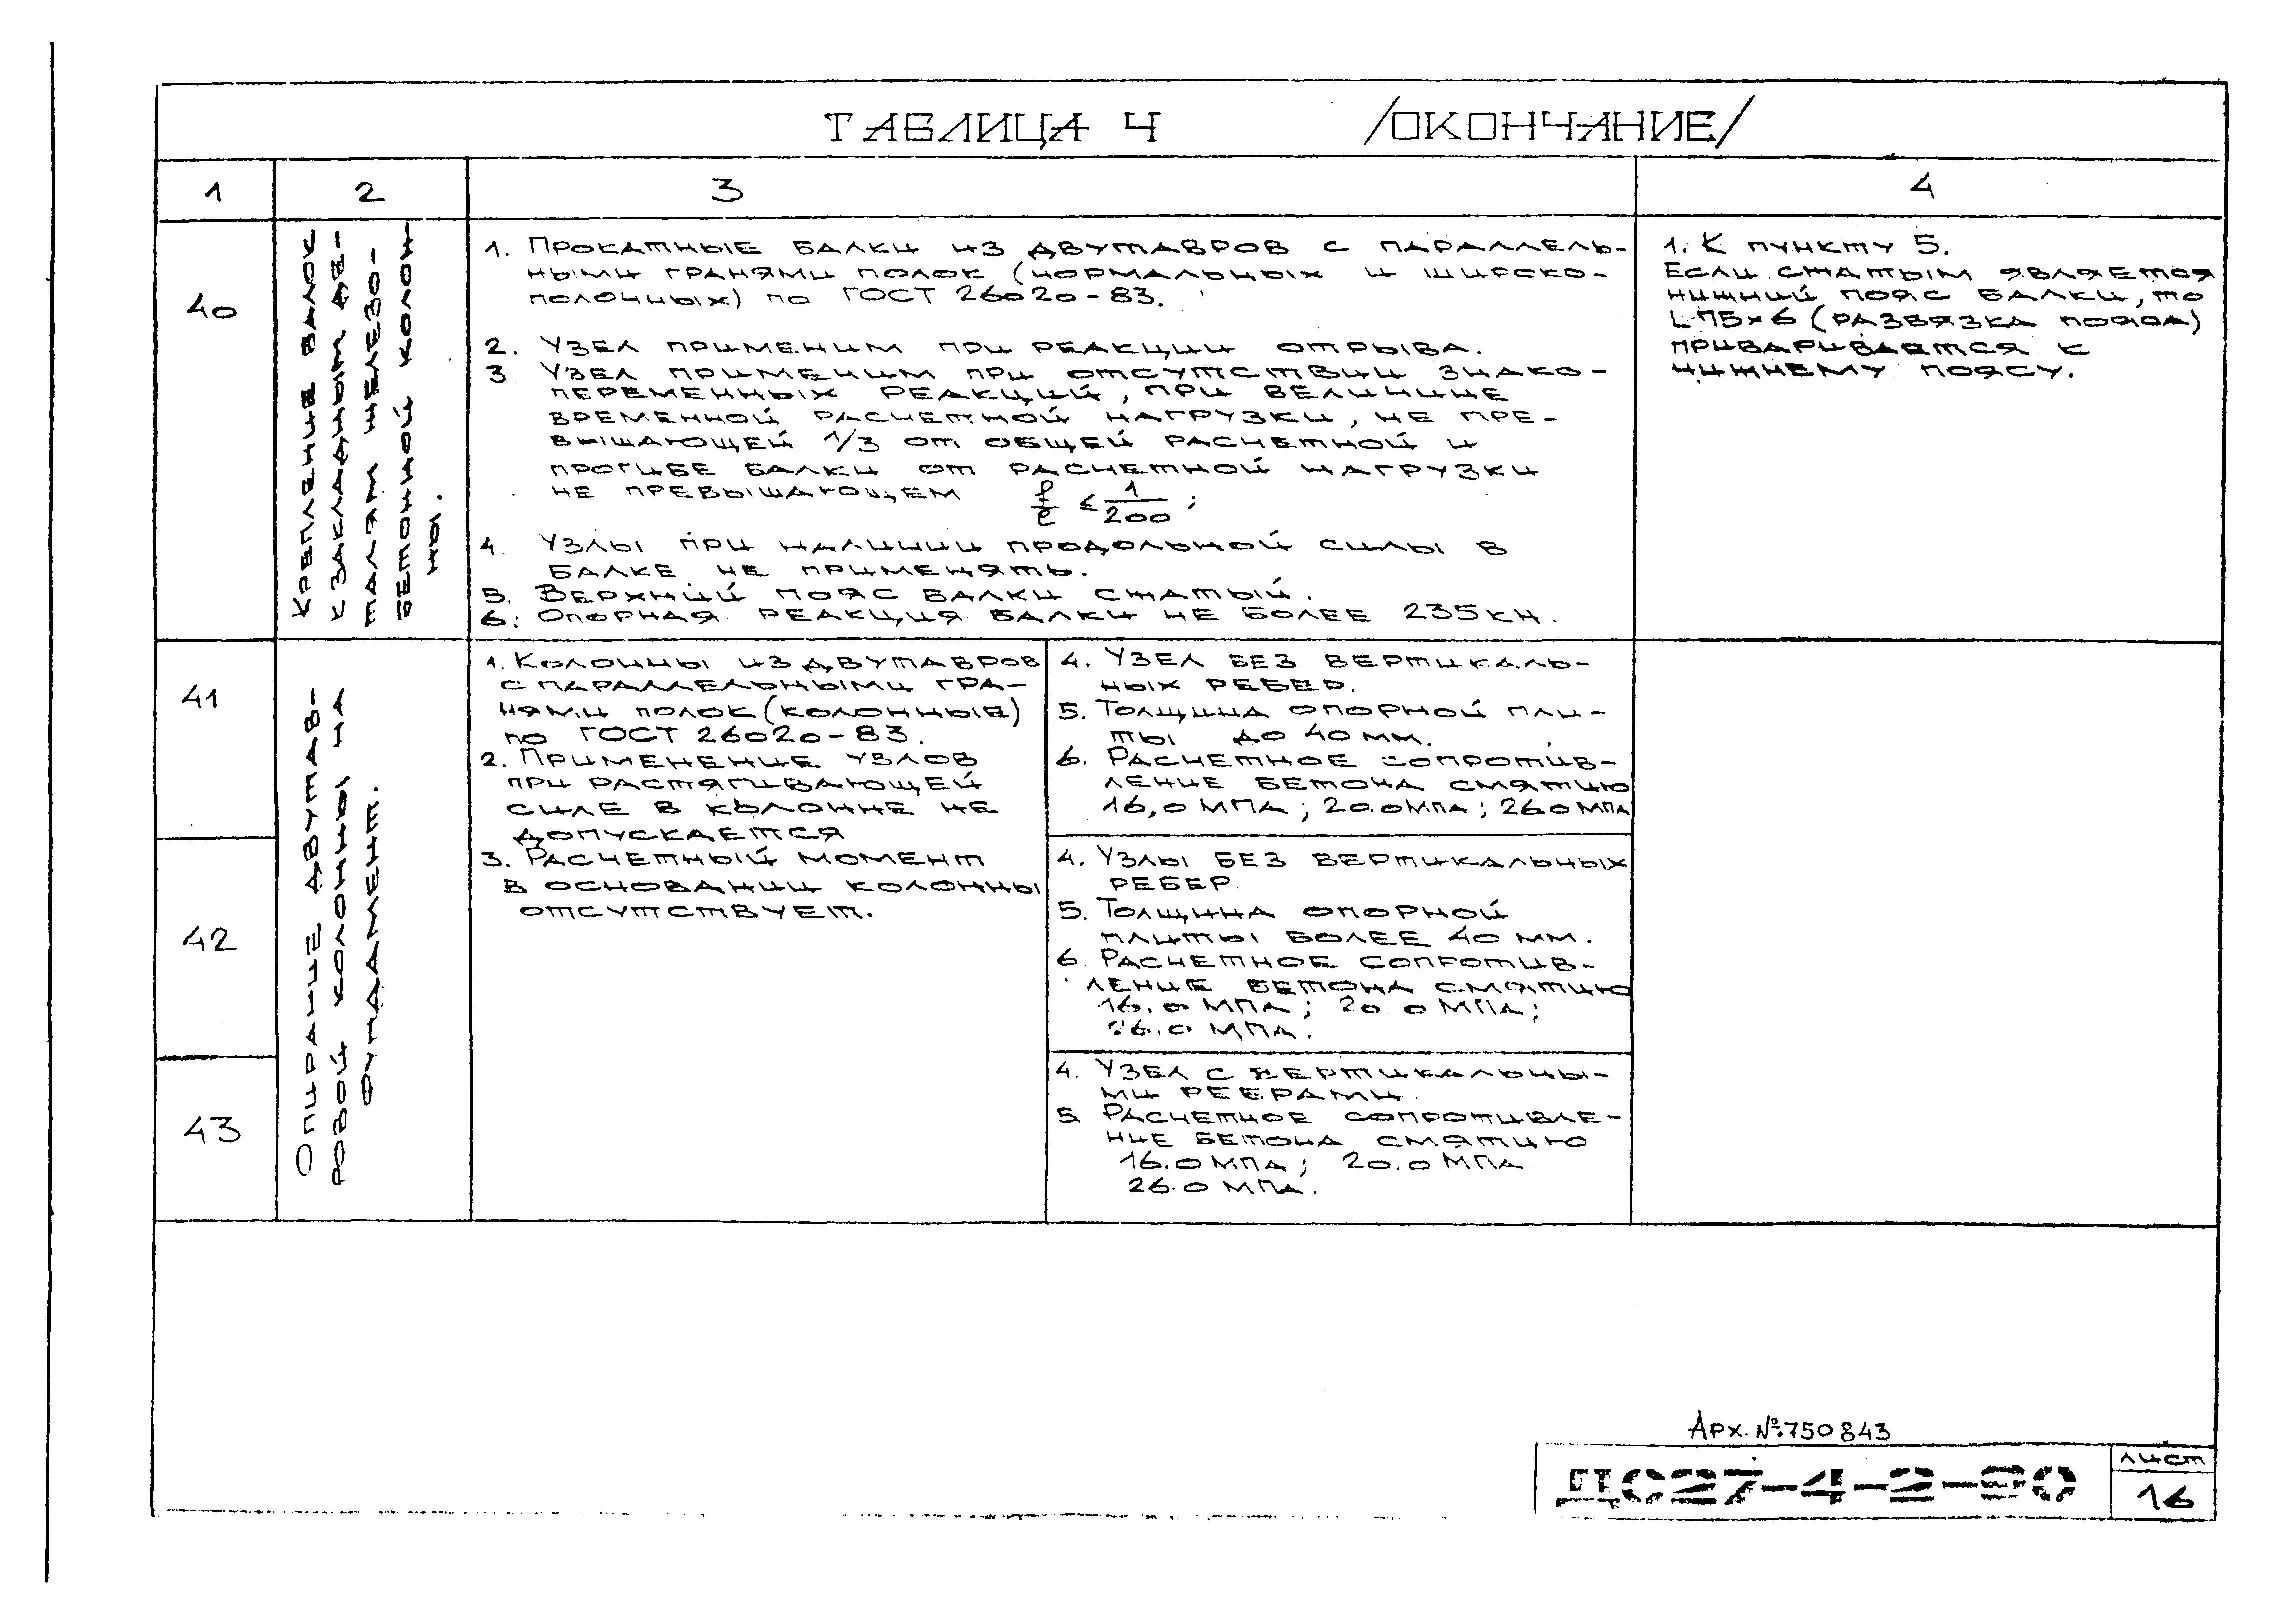 ТАБЛИЦА 4 /ОКОНЧАНИЕ/
1 2 3 4
40
Крепление балок
к закладным де-
талям железо-
бетонной колон
ны.
1. Прокатные балки из двутавров с параллель-
ными гранями полок (нормальных и широко-
полочных) по ГОСТ 26020-83.
2. Узел применим при реакции отрыва.
3 Узел применим при отсутствии знако-
переменных реакций, при величине
временной расчетной нагрузки, не пре-
вышающей 1/3 от общей расчетной и
прогибе балки от расчетной нагрузки
не превышающем f/ℓ ≤ 1/200;
4. Узлы при наличии продольной силы в
балке не применять.
5. Верхний пояс балки сжатый.
6. Опорная реакция балки не более 235кН.
1. К пункту 5.
Если сжатым является
нижний пояс балки, то
L 75×6 (развязка пояса)
приваривается к
нижнему поясу.
41
42
43
Опирание двутав-
ровой колонны на
фундамент.
1. Колонны из двутавров
с параллельными гра-
нями полок (колонные)
по ГОСТ 26020-83.
2. Применение узлов
при растягивающей
силе в колонне не
допускается
3. Расчетный момент
в основании колонны
отсутствует.
4. Узел без вертикаль-
ных ребер.
5. Толщина опорной пли-
ты до 40 мм.
6. Расчетное сопротив-
ление бетона смятию
16,0 МПа; 20.0 МПа; 26.0 МПа
4. Узлы без вертикальных
ребер
5. Толщина опорной
плиты более 40 мм.
6 Расчетное сопротив-
ление бетона смятию
16.0 МПа; 20 0 МПа;
26.0 МПа.
4. Узел с вертикальны-
ми ребрами.
5 Расчетное сопротивле-
ние бетона смятию
16.0 МПа; 20.0 МПа
26.0 МПа.
Арх. № 750843
ДС27-4-2-90
лист
16